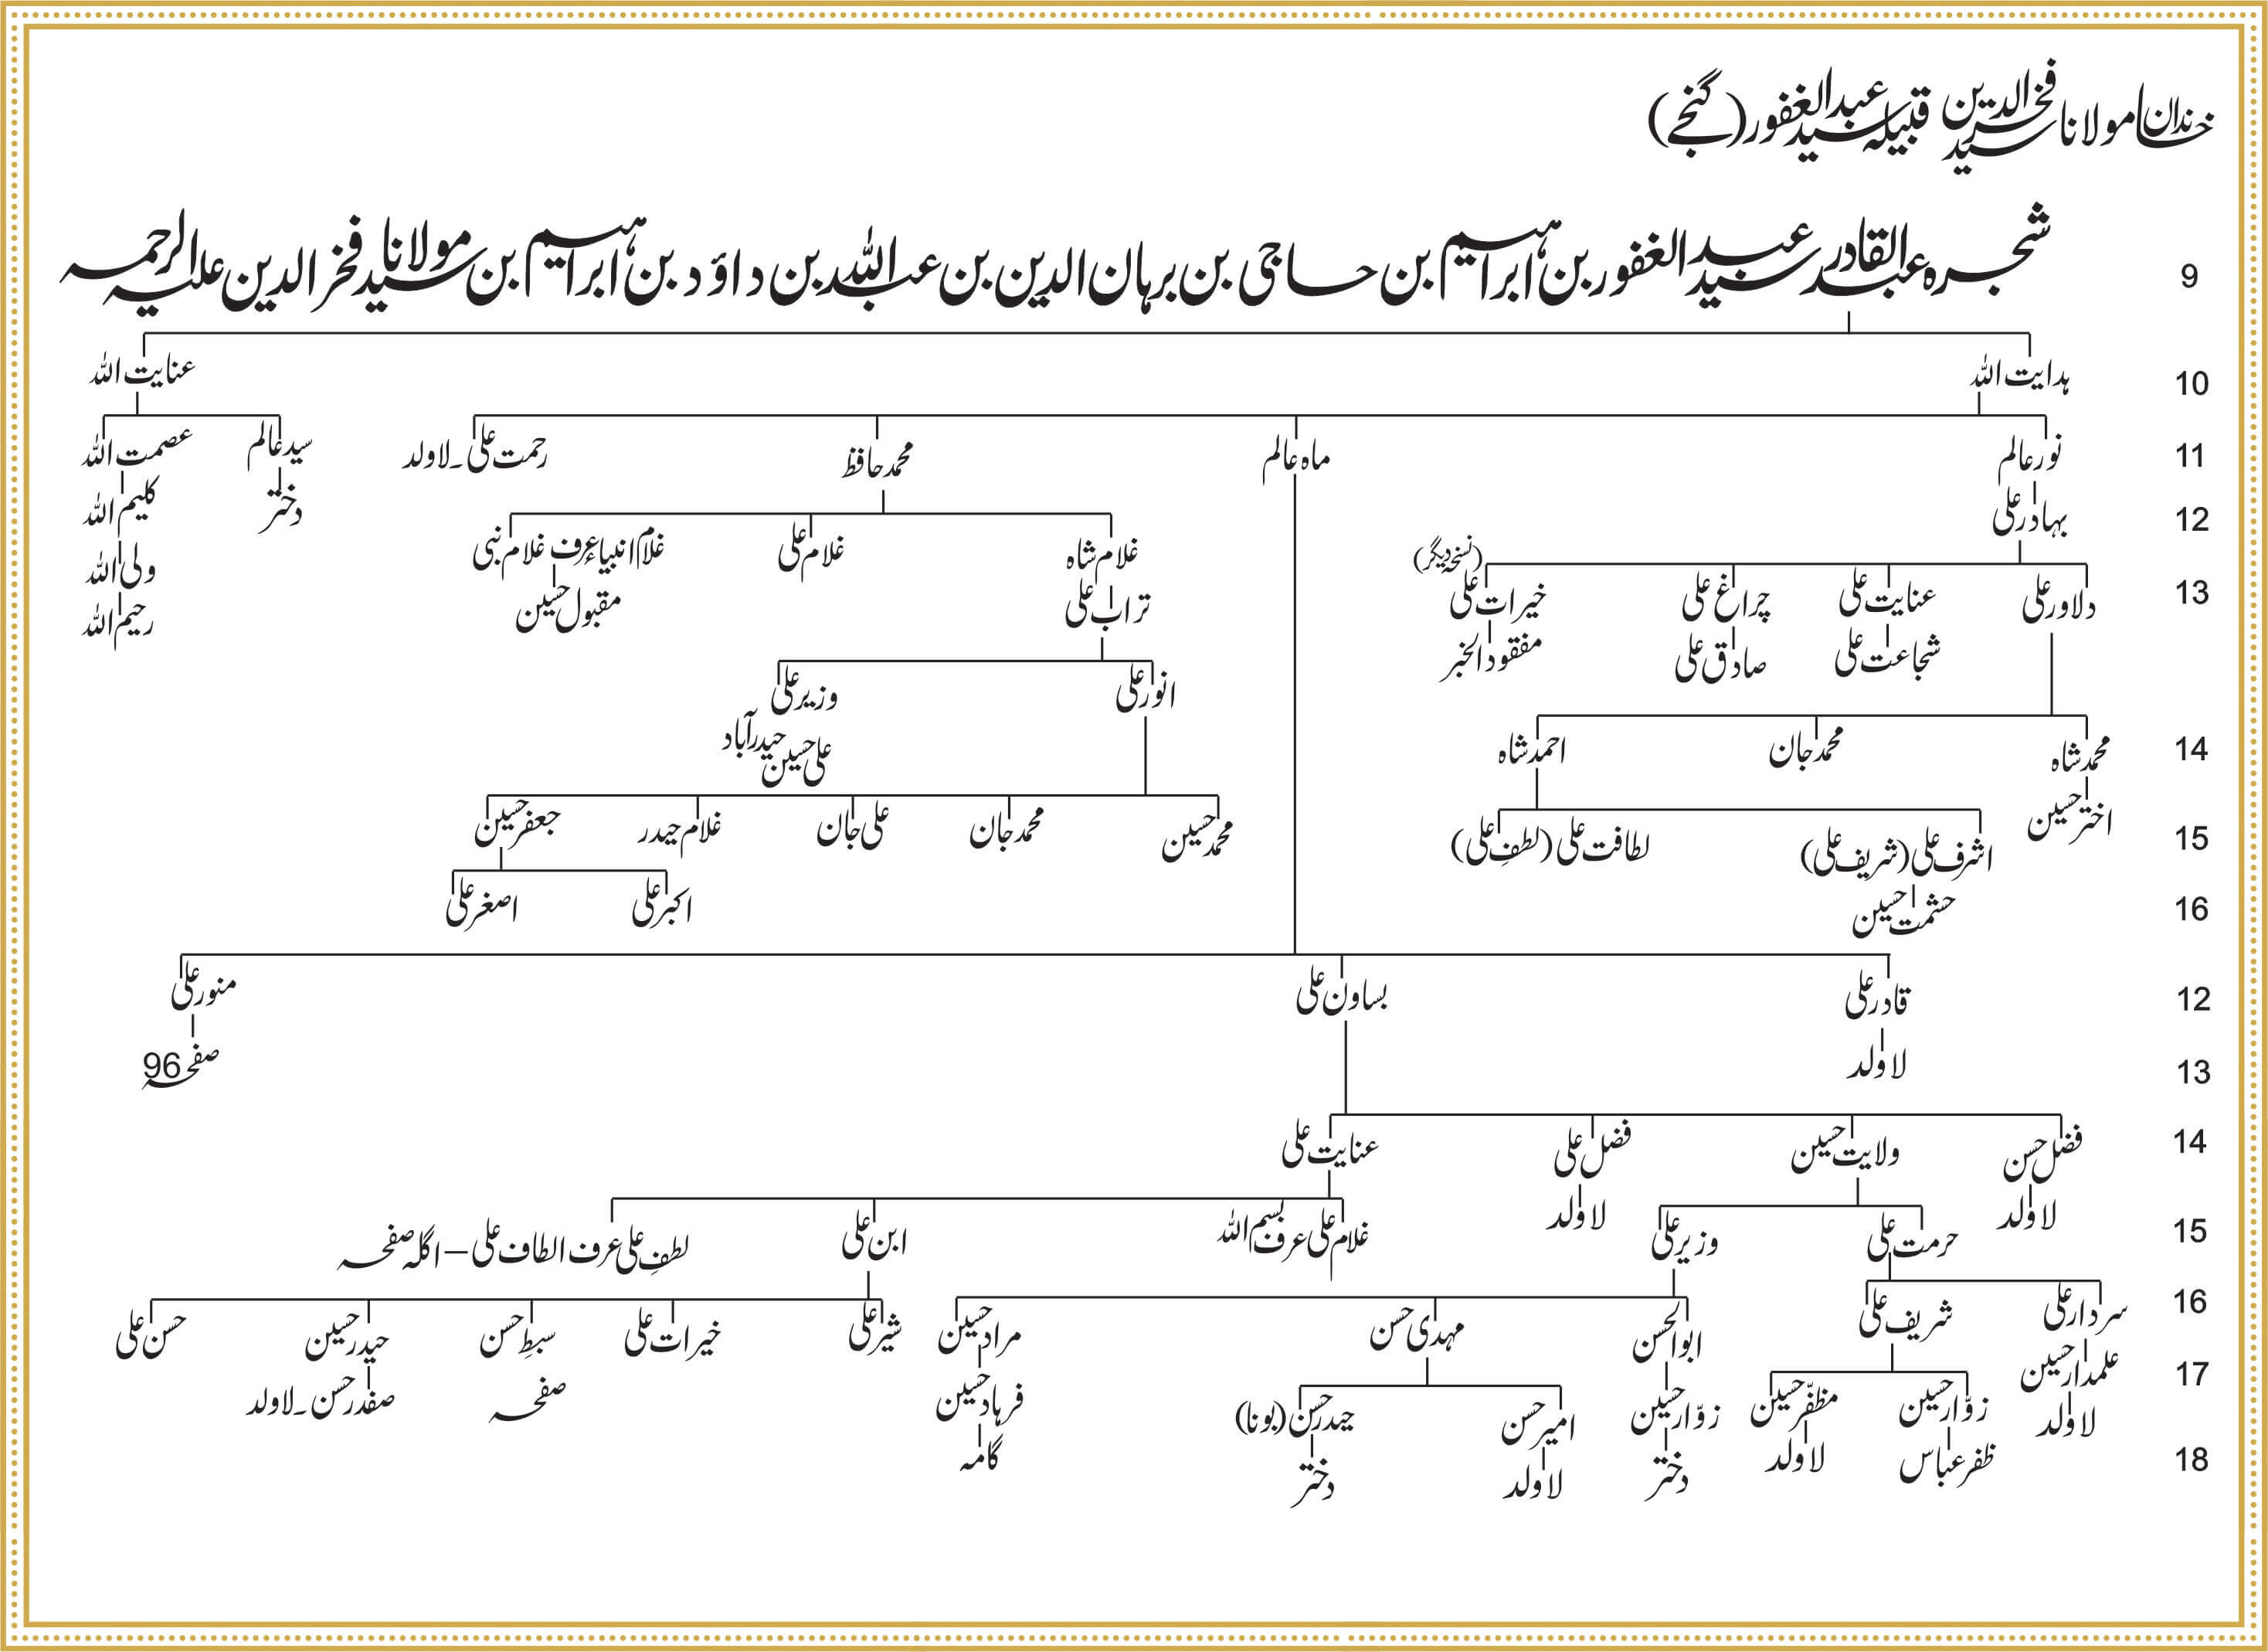 خاندان مولانا سید فخرالدین قبیلہ سید عبدالغفور (گنجے)
شجرہ عبدالقادر سید عبدالغفور بن ابراہیم بن حاجی بن برہان الدین بن عبداللہ بن داؤد بن ابراہیم بن مولانا سید فخرالدین علیہ الرحمہ 9
ہدایت اللہ عنایت اللہ 10
نور عالم ماہ عالم محمد حافظ رحمت علی۔لاولد سید عالم عصمت اللہ 11
بہادر علی دختر کلیم اللہ 12
غلام شاہ غلام علی غلام انبیاء عرف غلام نبی
(نسخہ دیگر)
دلاور علی عنایت علی چراغ علی خیرات علی تراب علی مقبول حسین ولی اللہ 13
رحیم اللہ
شجاعت علی صادق علی مفقود الخبر
انور علی وزیر علی
حیدرآباد
محمد شاہ محمد جان احمد شاہ علی حسین 14
اختر حسین اشرف علی (شریف علی) لطافت علی (لطف علی) محمد حسین محمد جان علی جان غلام حیدر جعفر حسین 15
حشمت حسین اکبر علی اصغر علی 16
قادر علی بساون علی منور علی 12
لاولد صفحہ 96 13
فضل حسن ولایت حسین فضل علی عنایت علی 14
لاولد لاولد
حرمت علی وزیر علی غلام علی عرف بسم اللہ ابن علی لطفِ علی عرف الطاف علی – اگلہ صفحہ 15
سردار علی شریف علی ابوالحسن مہدی حسن مراد حسین شیر علی خیرات علی سبطِ حسن حیدر حسین حسن علی 16
علمدار حسین زوّار حسین مظفّر حسین زوّار حسین امیر حسن حیدر حسن (بونا) فرہاد حسین صفحہ صفدر حسن۔لاولد 17
لاولد ظفر عباس لاولد دختر لاولد دختر گامہ 18